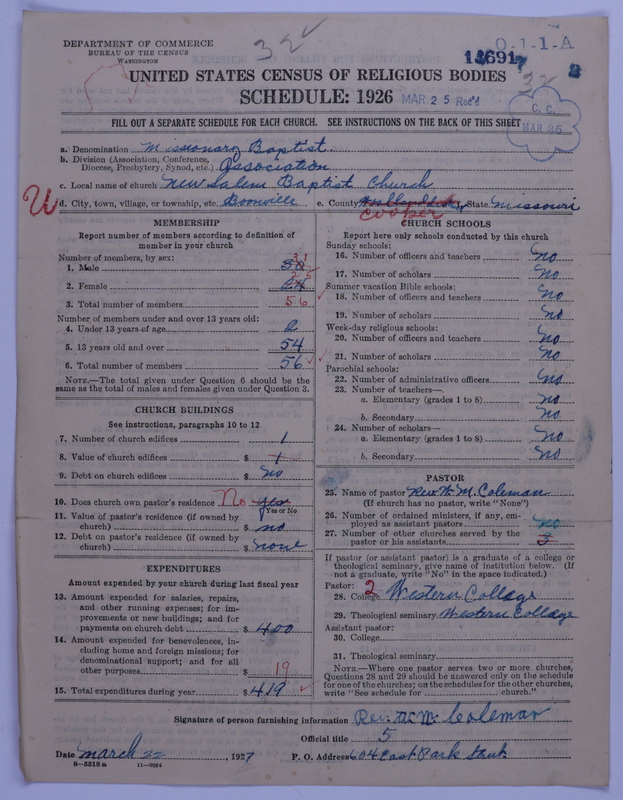 DEPARTMENT OF COMMERCE
BUREAU OF THE CENSUS
WASHINGTON
32
0-1-1-A
13691
UNITED STATES CENSUS OF RELIGIOUS BODIES
SCHEDULE: 1926
MAR 25 Rec'd
C. C.
MAR 25
FILL OUT A SEPARATE SCHEDULE FOR EACH CHURCH. SEE INSTRUCTIONS ON THE BACK OF THIS SHEET
a. Denomination Missionary Baptist
b. Division (Association, Conference,
Diocese, Presbytery, Synod, etc.) Association
c. Local name of church New Salem Baptist Church
U d. City, town, village, or township, etc. Boonville e. County Cooper State Missouri
MEMBERSHIP
Report number of members according to definition of
member in your church
Number of members, by sex:
1. Male 31
2. Female 25
3. Total number of members 56
Number of members under and over 13 years old:
4. Under 13 years of age 2
5. 13 years old and over 54
6. Total number of members 56
NOTE.—The total given under Question 6 should be the
same as the total of males and females given under Question 3.
CHURCH BUILDINGS
See instructions, paragraphs 10 to 12
7. Number of church edifices 1
8. Value of church edifices $ 1
9. Debt on church edifices $ No
10. Does church own pastor's residence No yes
Yes or No
11. Value of pastor's residence (if owned by
church) $ no
12. Debt on pastor's residence (if owned by
church) $ none
EXPENDITURES
Amount expended by your church during last fiscal year
13. Amount expended for salaries, repairs,
and other running expenses; for im-
provements or new buildings; and for
payments on church debt $ 400
14. Amount expended for benevolences, in-
cluding home and foreign missions; for
denominational support; and for all
other purposes $ 19
15. Total expenditures during year $ 419
CHURCH SCHOOLS
Report here only schools conducted by this church
Sunday schools:
16. Number of officers and teachers No
17. Number of scholars No
Summer vacation Bible schools:
18. Number of officers and teachers No
19. Number of scholars No
Week-day religious schools:
20. Number of officers and teachers No
21. Number of scholars No
Parochial schools:
22. Number of administrative officers No
23. Number of teachers—
a. Elementary (grades 1 to 8) No
b. Secondary No
24. Number of scholars—
a. Elementary (grades 1 to 8) No
b. Secondary No
PASTOR
25. Name of pastor Rev. W. M. Coleman
(If church has no pastor, write "None")
26. Number of ordained ministers, if any, em-
ployed as assistant pastors no
27. Number of other churches served by the
pastor or his assistants 3
If pastor (or assistant pastor) is a graduate of a college or
theological seminary, give name of institution below. (If
not a graduate, write "No" in the space indicated.)
Pastor:
28. College 2 Western Collage
29. Theological seminary Western Collage
Assistant pastor:
30. College
31. Theological seminary
NOTE.—Where one pastor serves two or more churches,
Questions 28 and 29 should be answered only on the schedule
for one of the churches; on the schedules for the other churches,
write "See schedule for church."
Signature of person furnishing information Rev. W. M. Coleman
Official title 5
Date March 22, 1927 P. O. Address 604 East Park Street
8-5518a 11-9684